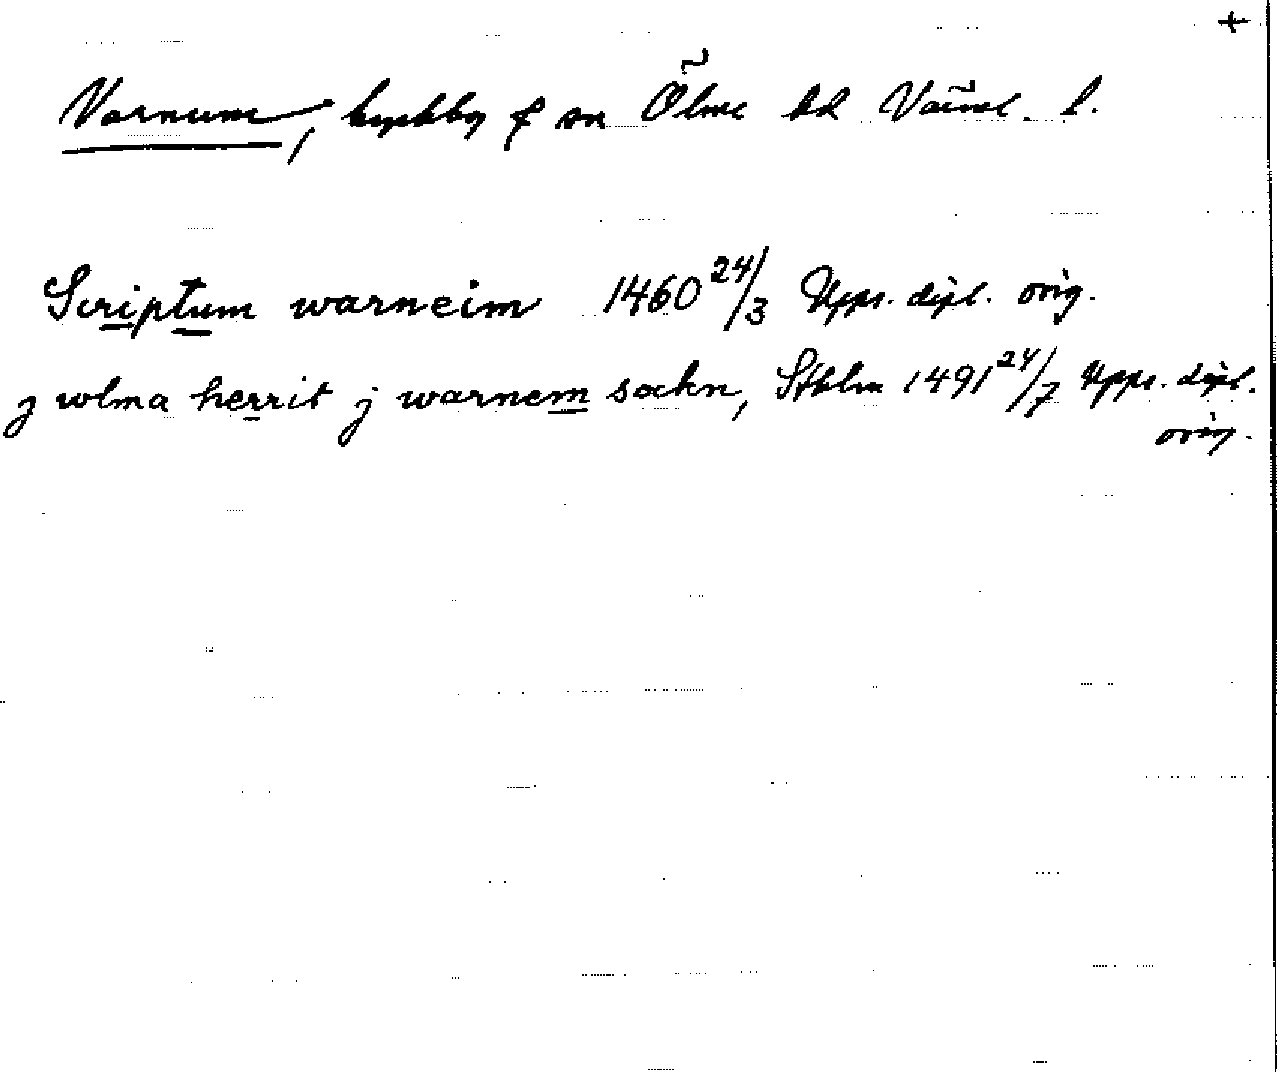 +
Varnum, kyrkby o sn Ölme hd Värml. l.
Scriptum warneim 1460 24/3 Upps. dipl. orig.
j wlma herrit j warnem sockn, Sthlm 1491 24/7 Upps. dipl.
orig.